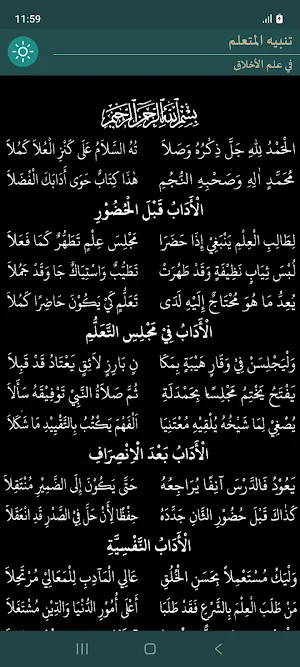 11:59
تنبيه المتعلم
في علم الأخلاق
بِسْمِ اللهِ الرَّحْمٰنِ الرَّحِيْمِ
الْحَمْدُ لِلهِ جَلَّ ذِكْرُهُ وَصَلَا تُهُ السَّلاَمُ عَلَى كَنْزِ الْعُلاَ كَمُلاَ
مُحَمَّدٍ اٰلِهِ وَصَحْبِهِ النُّجُمِ هٰذَا كِتَابٌ حَوَى آدَابَكَ الْفُضَلاَ
الْأَدَابُ قَبْلَ الْحُضُوْرِ
لِطَالِبِ الْعِلْمِ يَنْبَغِيْ إِذَا حَضَرَا مَجْلِسَ عِلْمٍ تَطَهُّرٌ كَمَا فَعَلاَ
لُبْسُ ثِيَابٍ نَظِيْفَةٍ وَقَدْ طَهُرَتْ تَطَيُّبٌ وَاسْتِيَاكٌ جَا وَقَدْ جَمُلاَ
يُعِدُّ مَا هُوَ مُحْتَاجٌ إِلَيْهِ لَدَى تَعَلُّمٍ كَيْ يَكُوْنَ حَاضِرًا كَمُلاَ
الْأَدَابُ فِيْ مَجْلِسِ التَّعَلُّمِ
وَلْيَجْلِسَنْ فِيْ وَقَارٍ هَيْبَةٍ بِمَكَا نٍ بَارِزٍ لاَئِقٍ يَعْتَادُ قَدْ قَبِلاَ
يَفْتَحُ يَخْتِمُ مَجْلِسًا بِحَمْدَلَةِ ثُمَّ صَلاَةُ النَّبِيْ تَوْفِيْقَهُ سَأَلاَ
يُصْغِيْ لِمَا شَيْخُهُ يُلْقِيْهِ مُعْتَنِيَا اَلْفَهْمَ يَكْتُبُ بِالتَّقْيِيْدِ مَا شَكَلاَ
الْأَدَابُ بَعْدَ الْاِنْصِرَافِ
يَعُوْدُ فَالدَّرْسَ آنِفًا يُرَاجِعُهُ حَتَّى يَكُوْنَ إِلَى الضَّمِيْرِ مُنْتَقِلاَ
كَذَاكَ قَبْلَ حُضُوْرِ الثَّانِ جَدَّدَهُ حِفْظًا لِأَنْ حَلَّ فِيْ الصَّدْرِ قَدِ انْعَقَلاَ
الْأَدَابُ النَّفْسِيَّةِ
وَلْيَكُ مُسْتَعْمِلاً بِحُسْنِ الْخُلُقِ عَالِي الْمَآدِبِ لِلْمَعَالِيْ مُرْتَحِلاَ
مَنْ طَلَبَ الْعِلْمَ بِالشَّرْعِ فَقَدْ طَلَبَا أَعْلَى أُمُوْرِ الدُّنْيَا وَالدِّيْنِ مُشْتَغَلاَ